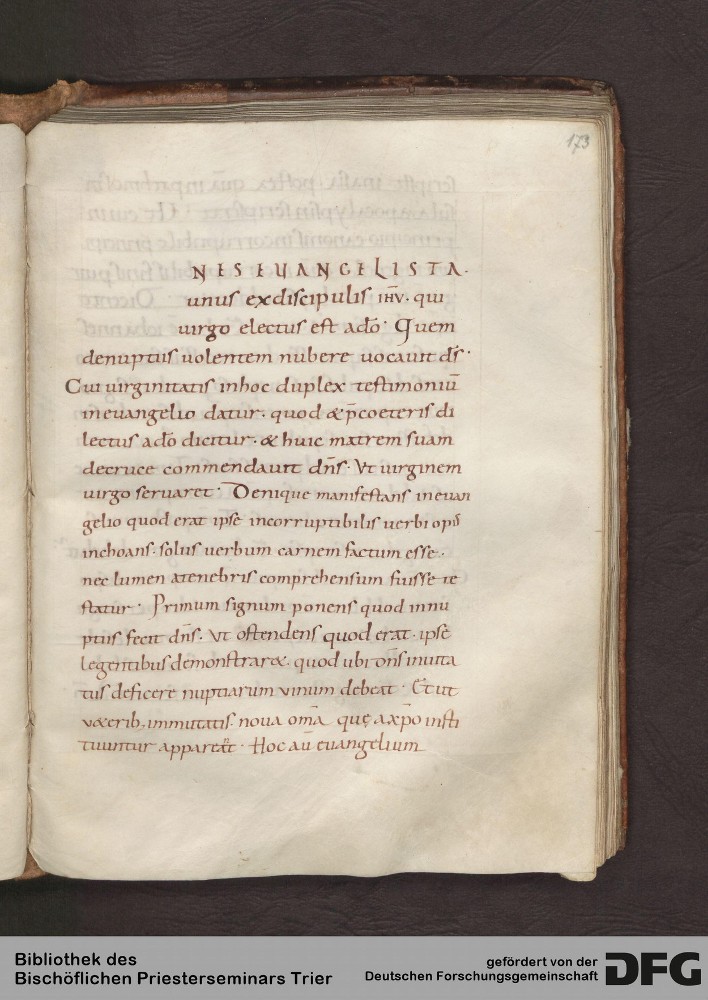 173
NES EUANGELISTA.
unus ex discipulis ihū. qui
uirgo electus est adō. Quem
denuptus uolentem nubere uocauit dſ.
Cui uirginitatis inhoc duplex testimoniū
ineuangelio datur. quod & p̄coeteris di
lectus adō dicitur. & huic matrem suam
decruce commendauit dn̄s. Vt uirginem
uirgo seruaret. Denique manifestans ineuan
gelio quod erat ipse incorruptibilis uerbi op̄s
inchoans. solus uerbum carnem factum esse.
nec lumen atenebris comprehensum fuisse te
statur. Primum signum ponens quod innu
ptiis fecit dn̄s. Vt ostendens quod erat. ipse
legentibus demonstrar&. quod ubi dn̄s inuita
tus deficere nuptiarum uinum debeat. Et ut
u&erib; immutatis. noua om̄a que axp̄o insti
tuuntur appareat. Hoc aū euangelium
Bibliothek des
Bischöflichen Priesterseminars Trier
gefördert von der
Deutschen Forschungsgemeinschaft
DFG